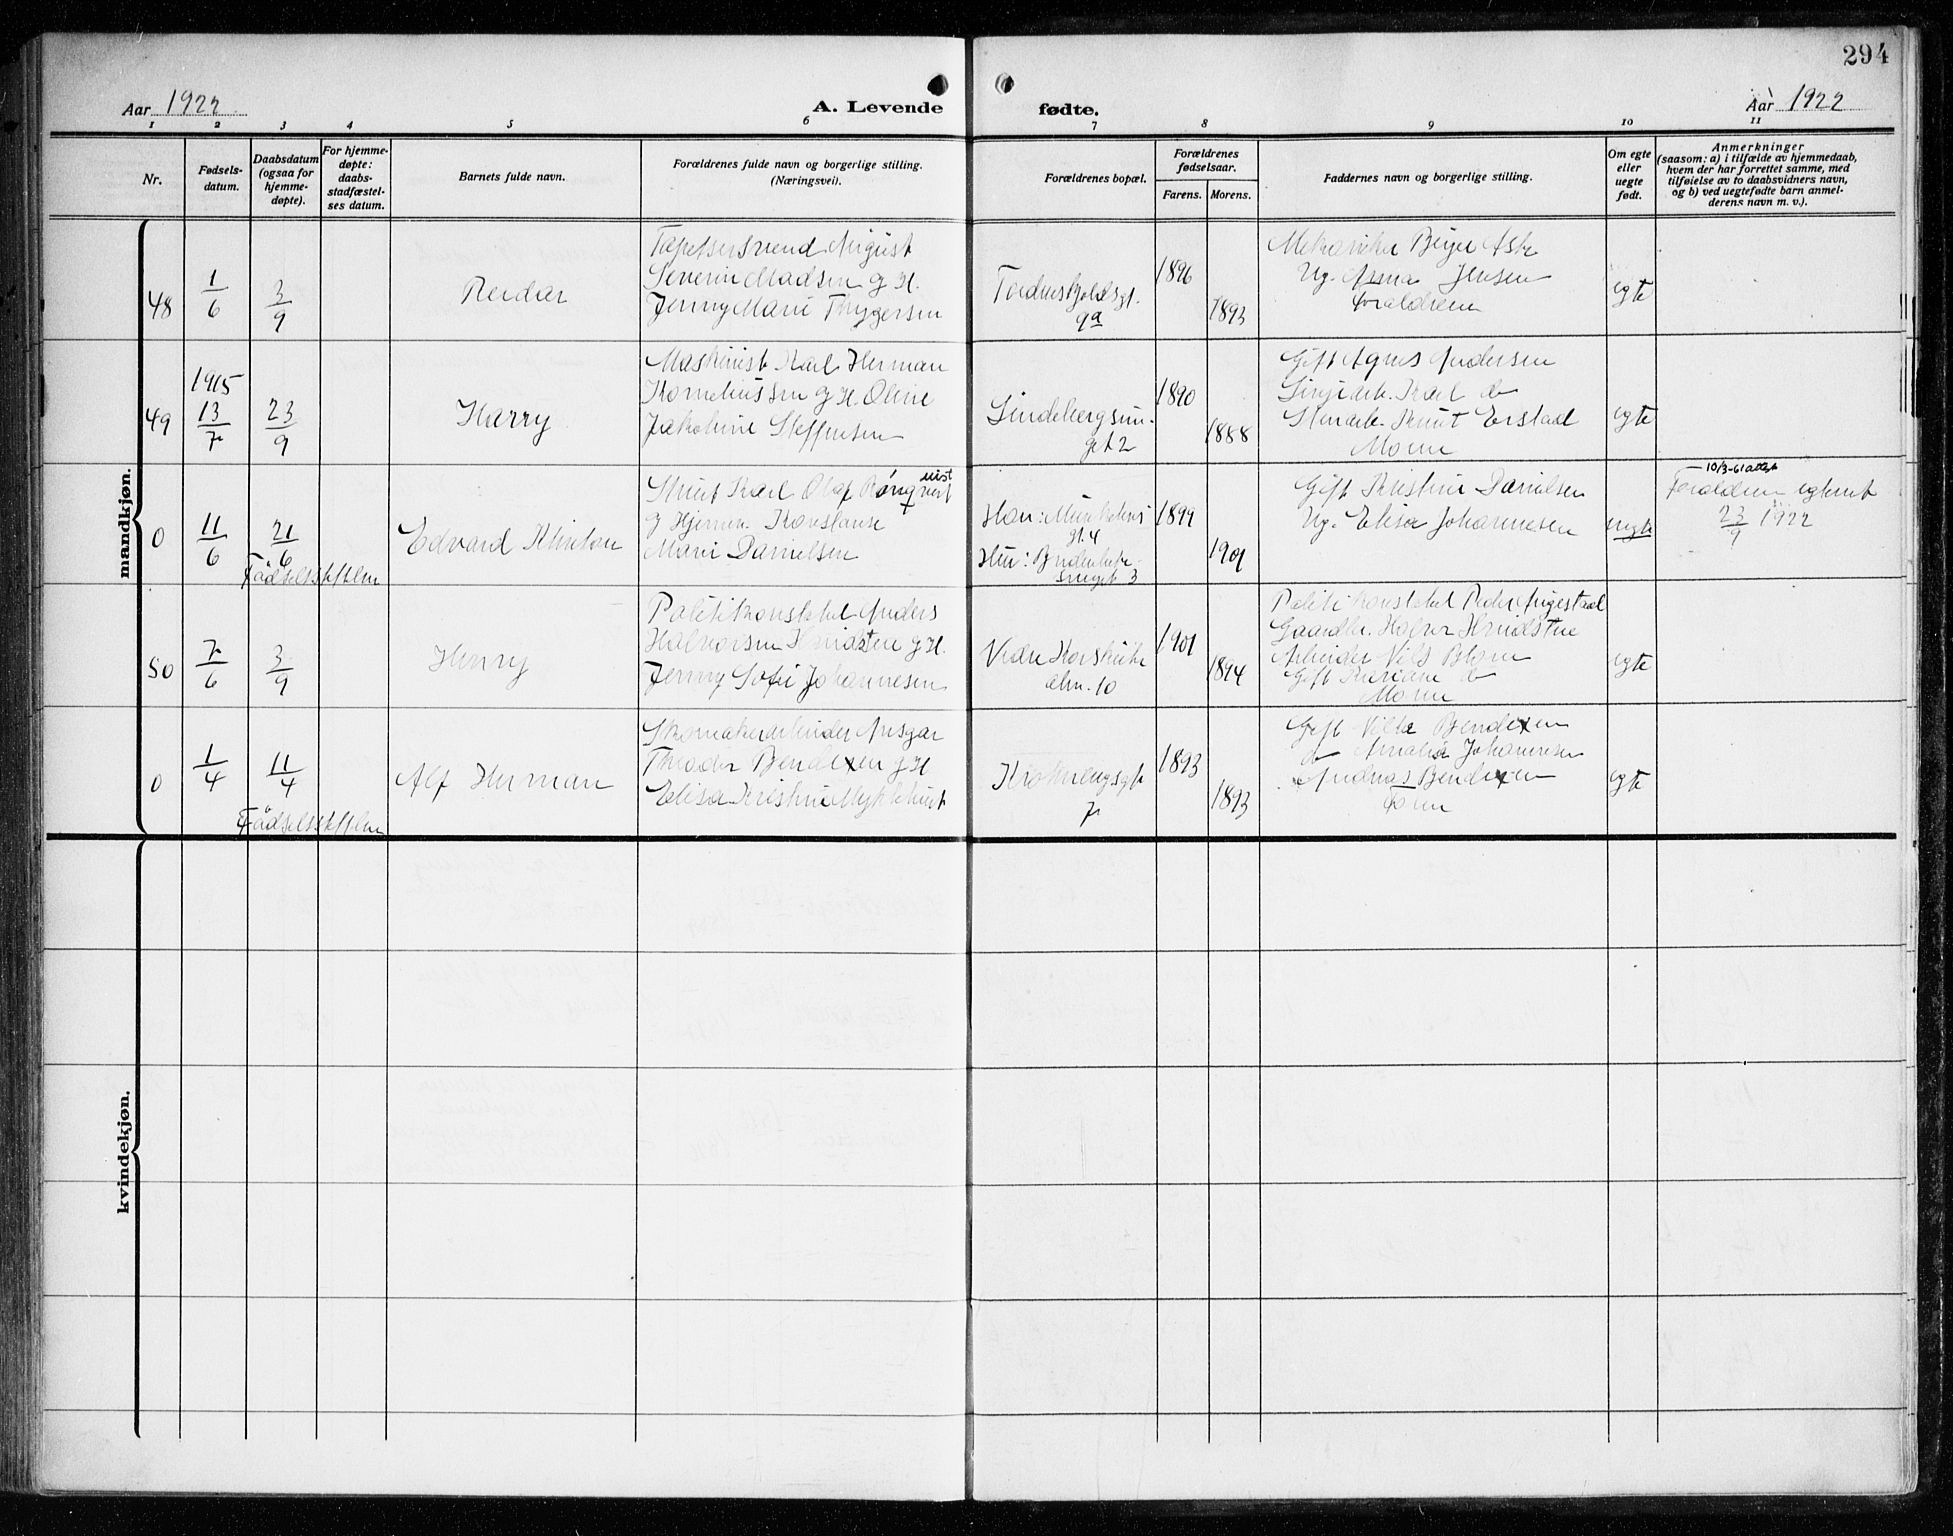 294
Aar 1922
A. Levende
fødte.
Aar 1922
1 2 3 4 5 6 7 8 9 10 11
Nr.
Fødsels-
datum.
Daabsdatum
(ogsaa for
hjemme-
døpte).
For hjemme-
døpte:
daabs-
stadfæstel-
ses datum.
Barnets fulde navn.
Forældrenes fulde navn og borgerlige stilling.
(Næringsvei).
Forældrenes bopæl.
Forældrenes
fødselsaar.
Farens. Morens.
Faddernes navn og borgerlige stilling.
Om egte
eller
uegte
født.
Anmerkninger
(saasom: a) i tilfælde av hjemmedaab,
hvem der har forrettet samme, med
tilføielse av to daabsvidners navn,
og b) ved uegtefødte barn anmel-
derens navn m. v.).
mandkjøn.
48
1/6
3/9
Reidar
Tapetsersvend August
Severin Madsen g. H.
Jenny Marie Thygersen
Tordenskjoldsgt.
9a
1896
1893
Mekaniker Birger Ask
Ug. Anna Jensen
Forældrene
egte
49
1915
13/7
23/9
Harry
Maskinist Karl Herman
Korneliussen g. H. Oline
Jakobine Steffensen
Lindebergsmu-
get 2
1890
1888
Gift Agnes Andersen
Karl do
Knut Erstad
Moren
egte
0
11/6
21/6
Fødselsstiftelsen
Edvard Kristian
Karl Olaf Rönqvist
g Hjemm. Konstanse
Marie Danielsen
Han: Munkebæks
gt. 4
Hun:
smuget 3
1899
1901
Gift Kristine Danielsen
Ug. Elisa Johannesen
uegte
10/3-61
Forældrene egteviet
23/9 1922
50
7/6
3/9
Henry
Politikonstabel Anders
Halvorsen g. H.
Jenny Sofie Johannesen
Vedre Korskirke
alm. 10
1901
1894
Politikonstabel Peder Augestad
Gaardbr. Halvor
Arbeider Nils Blom
Gift Mariane do
Moren
egte
0
1/4
11/4
Fødselsstiftelsen
Alf Herman
Skomakerarbeider Ansgar
Theodor Bendixen g. H
Elisa Kristine Myklebust
Krohnengsgt.
7
1893
1893
Gift Vilha Bendixen
do Amalia Johannesen
Andreas Bendixen
Faren
egte
kvindekjøn.